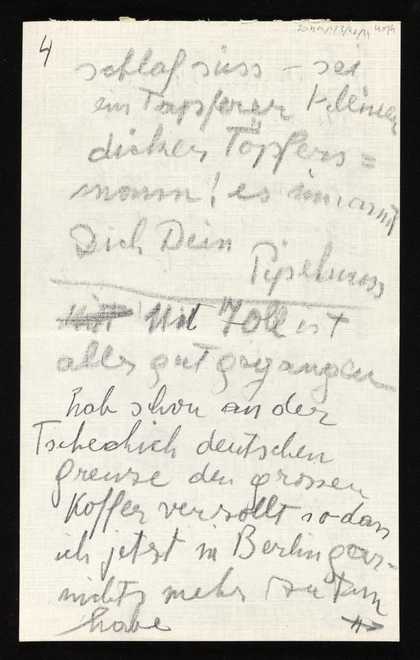 4
schlaf süss – sei
ein Tapferer kleiner
dicker Töpfers=
mann! es umarmt
Dich Dein
Mit Zoll ist
alles gut gegangen
hab schon an der
Tschechich deutschen
Grenze den grossen
Koffer verzollt sodass
ich jetzt in Berlin gar-
nichts mehr zu tun
habe